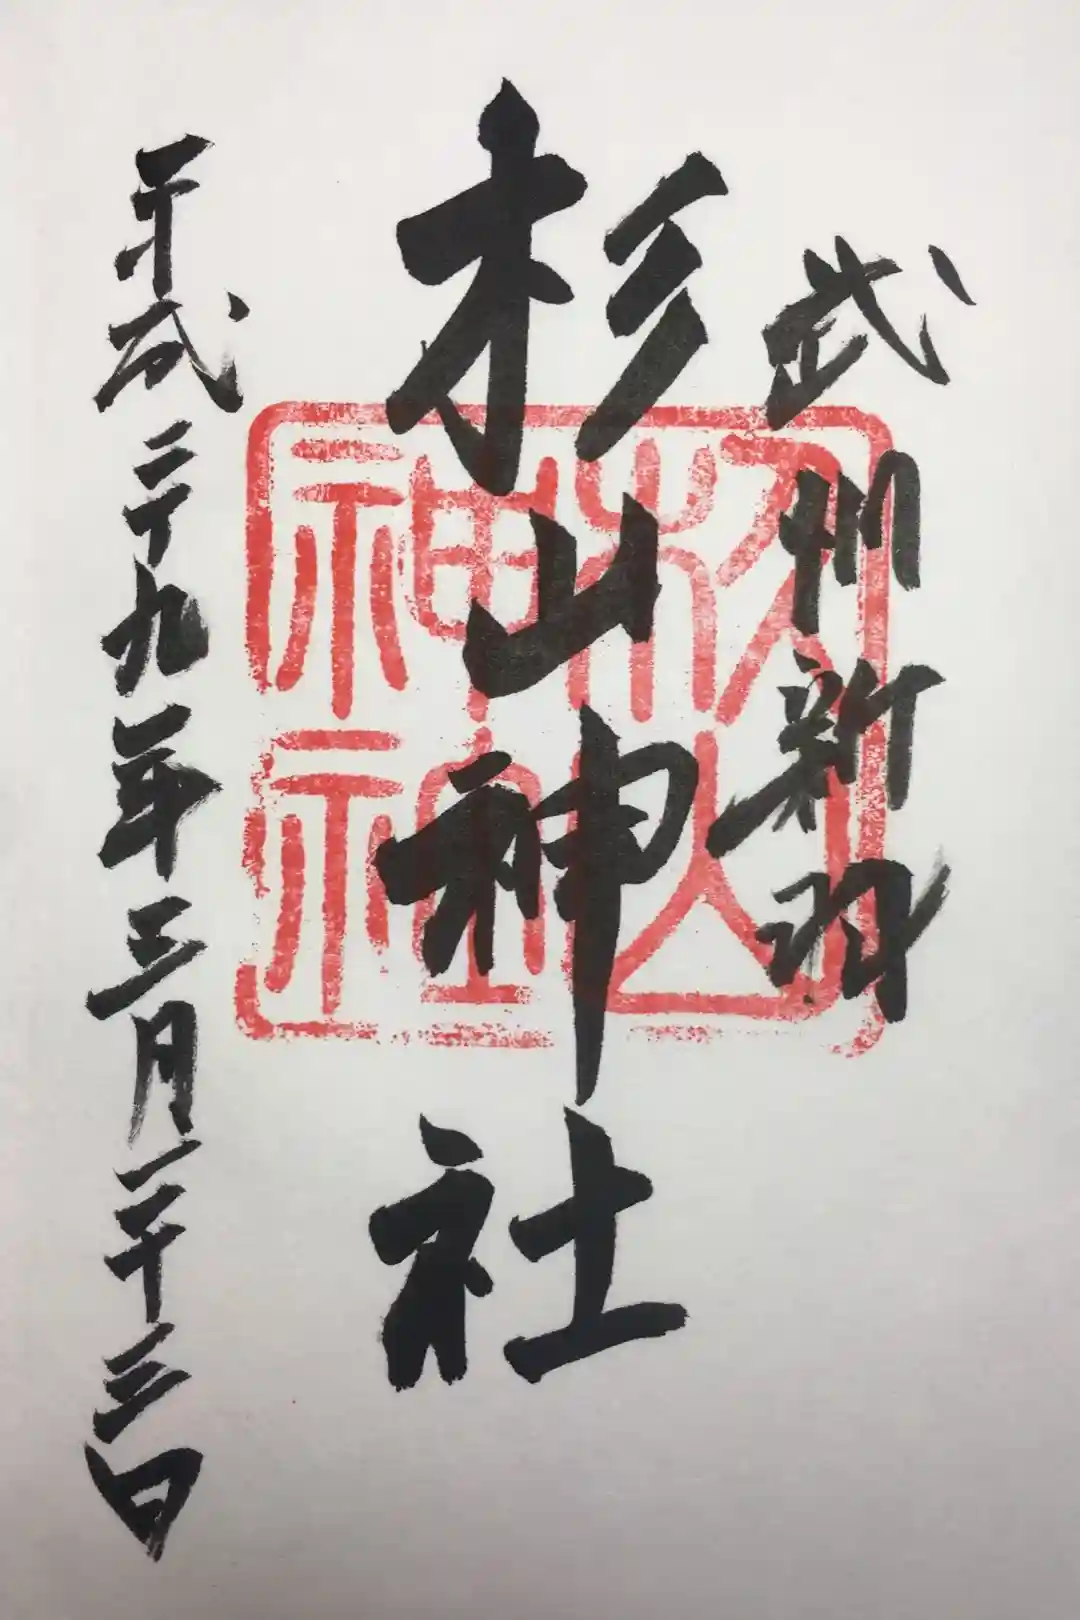 武州新羽
杉山神社
杉山
神社
平成二十九年三月二十三日